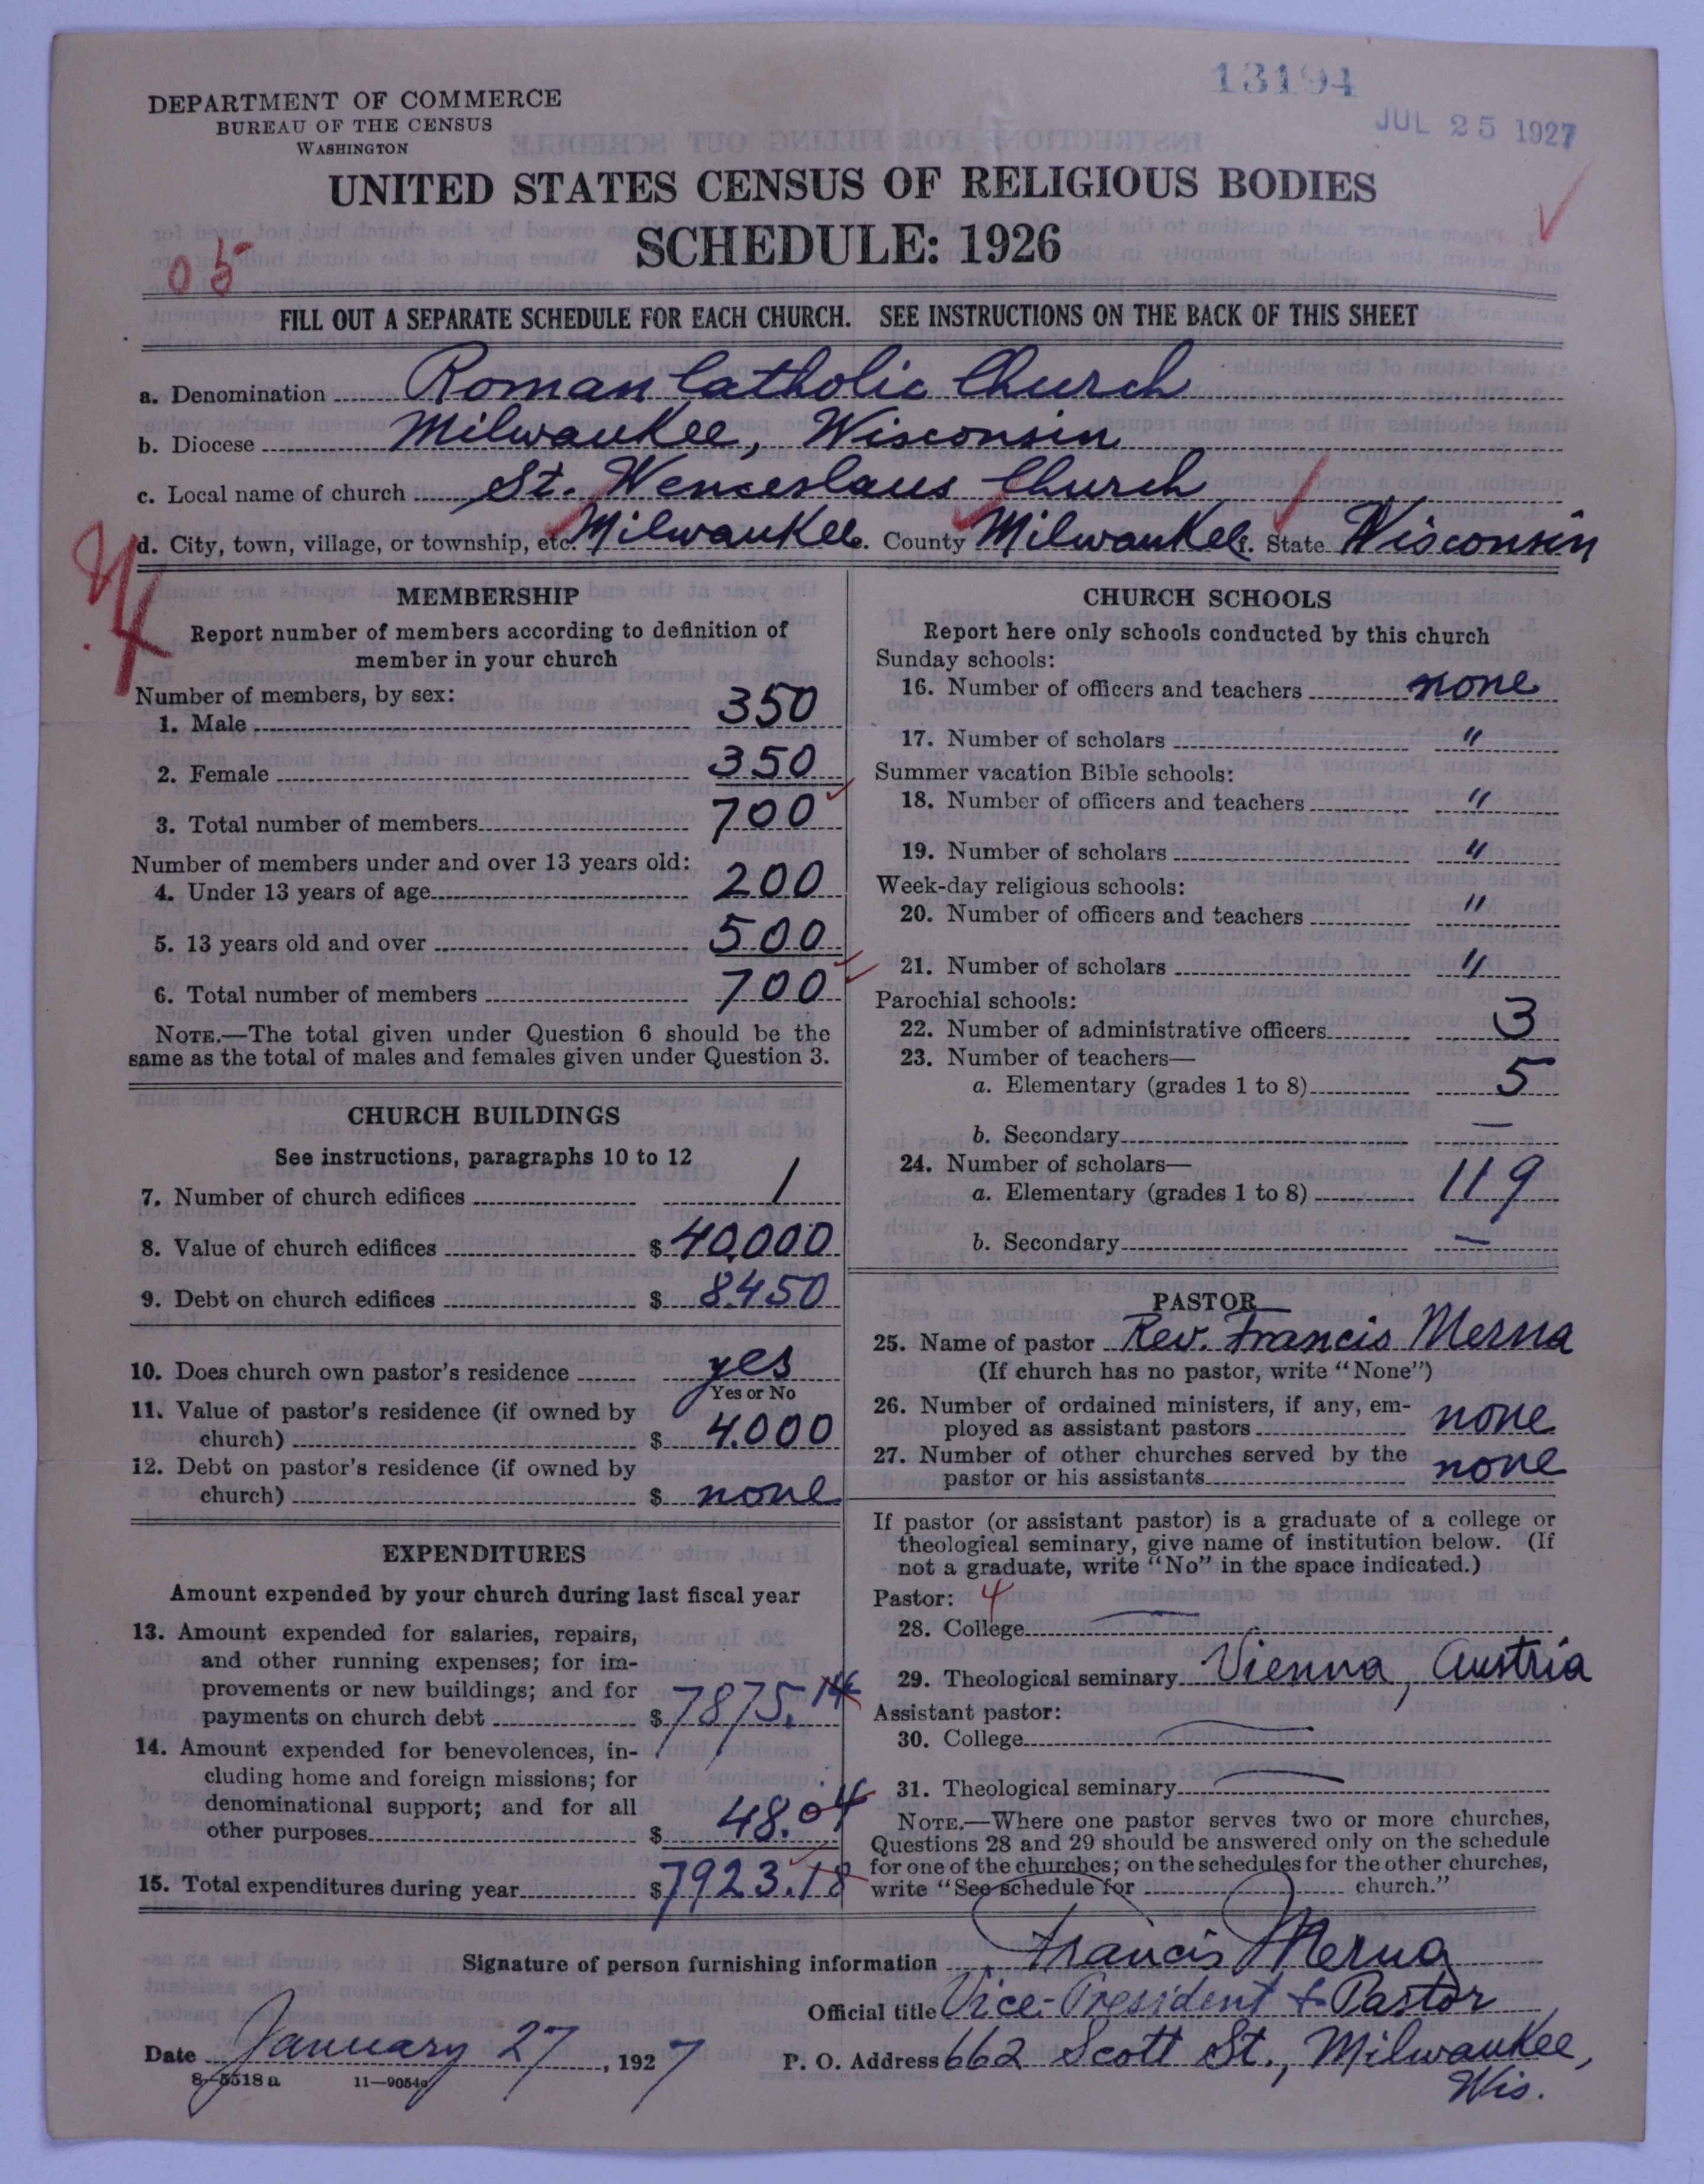 13194
JUL 25 1927
DEPARTMENT OF COMMERCE
BUREAU OF THE CENSUS
WASHINGTON
UNITED STATES CENSUS OF RELIGIOUS BODIES
SCHEDULE: 1926
05
FILL OUT A SEPARATE SCHEDULE FOR EACH CHURCH. SEE INSTRUCTIONS ON THE BACK OF THIS SHEET
a. Denomination Roman Catholic Church
b. Diocese Milwaukee, Wisconsin
c. Local name of church St. Wenceslaus Church
d. City, town, village, or township, etc. Milwaukee e. County Milwaukee f. State Wisconsin
MEMBERSHIP
Report number of members according to definition of
member in your church
Number of members, by sex:
1. Male 350
2. Female 350
3. Total number of members 700
Number of members under and over 13 years old:
4. Under 13 years of age 200
5. 13 years old and over 500
6. Total number of members 700
NOTE.—The total given under Question 6 should be the
same as the total of males and females given under Question 3.
CHURCH BUILDINGS
See instructions, paragraphs 10 to 12
7. Number of church edifices 1
8. Value of church edifices $ 40,000
9. Debt on church edifices $ 8450
10. Does church own pastor's residence yes
Yes or No
11. Value of pastor's residence (if owned by
church) $ 4.000
12. Debt on pastor's residence (if owned by
church) $ none
EXPENDITURES
Amount expended by your church during last fiscal year
13. Amount expended for salaries, repairs,
and other running expenses; for im-
provements or new buildings; and for
payments on church debt $ 7875.14
14. Amount expended for benevolences, in-
cluding home and foreign missions; for
denominational support; and for all
other purposes $ 48.04
15. Total expenditures during year $ 7923.18
CHURCH SCHOOLS
Report here only schools conducted by this church
Sunday schools:
16. Number of officers and teachers none
17. Number of scholars "
Summer vacation Bible schools:
18. Number of officers and teachers "
19. Number of scholars "
Week-day religious schools:
20. Number of officers and teachers "
21. Number of scholars "
Parochial schools:
22. Number of administrative officers 3
23. Number of teachers—
a. Elementary (grades 1 to 8) 5
b. Secondary —
24. Number of scholars—
a. Elementary (grades 1 to 8) 119
b. Secondary —
PASTOR
25. Name of pastor Rev. Francis Merna
(If church has no pastor, write "None")
26. Number of ordained ministers, if any, em-
ployed as assistant pastors none
27. Number of other churches served by the
pastor or his assistants none
If pastor (or assistant pastor) is a graduate of a college or
theological seminary, give name of institution below. (If
not a graduate, write "No" in the space indicated.)
Pastor: 4
28. College —
29. Theological seminary Vienna, Austria
Assistant pastor:
30. College —
31. Theological seminary —
NOTE.—Where one pastor serves two or more churches,
Questions 28 and 29 should be answered only on the schedule
for one of the churches; on the schedules for the other churches,
write "See schedule for church."
Signature of person furnishing information Francis Merna
Official title Vice-President & Pastor
Date January 27, 1927 P. O. Address 662 Scott St., Milwaukee,
Wis.
8-5518a 11-9054a